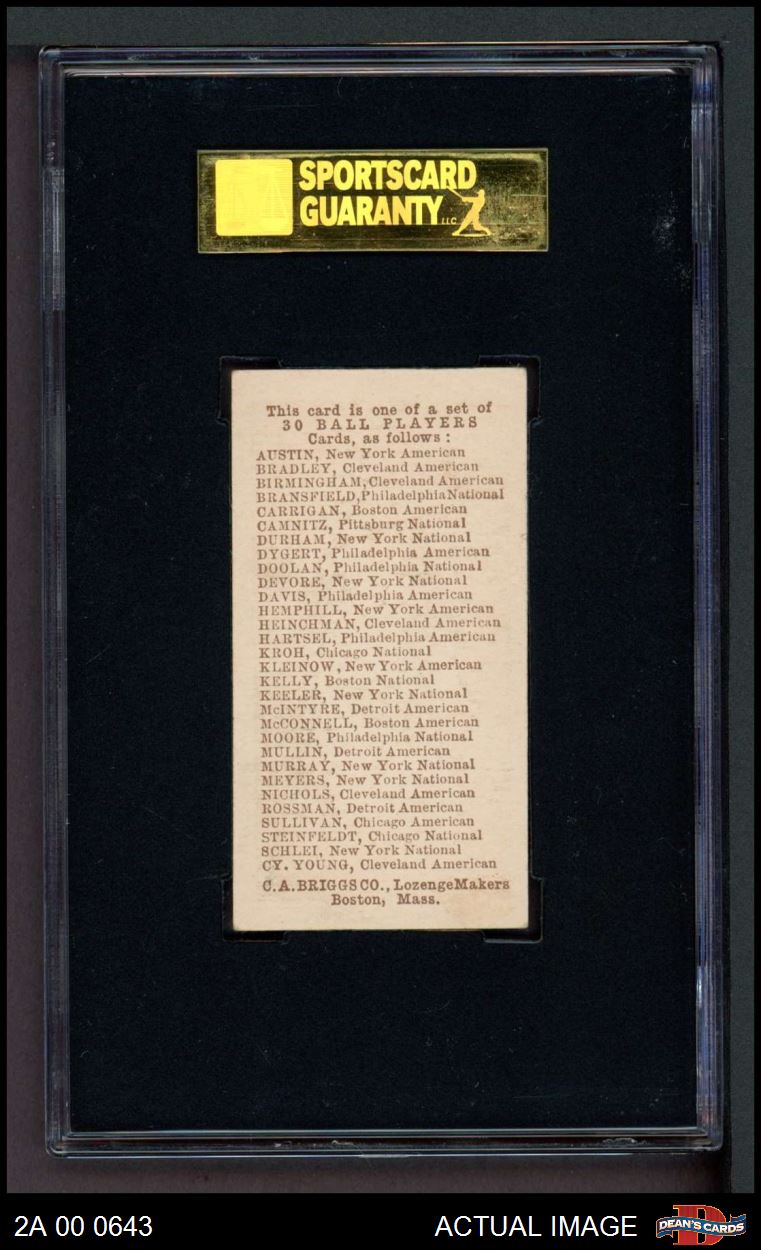 SPORTSCARD
GUARANTY LLC
This card is one of a set of
30 BALL PLAYERS
Cards, as follows :
AUSTIN, New York American
BRADLEY, Cleveland American
BIRMINGHAM, Cleveland American
BRANSFIELD, Philadelphia National
CARRIGAN, Boston American
CAMNITZ, Pittsburg National
DURHAM, New York National
DYGERT, Philadelphia American
DOOLAN, Philadelphia National
DEVORE, New York National
DAVIS, Philadelphia American
HEMPHILL, New York American
HEINCHMAN, Cleveland American
HARTSEL, Philadelphia American
KROH, Chicago National
KLEINOW, New York American
KELLY, Boston National
KEELER, New York National
McINTYRE, Detroit American
McCONNELL, Boston American
MOORE, Philadelphia National
MULLIN, Detroit American
MURRAY, New York National
MEYERS, New York National
NICHOLS, Cleveland American
ROSSMAN, Detroit American
SULLIVAN, Chicago American
STEINFELDT, Chicago National
SCHLEI, New York National
CY. YOUNG, Cleveland American
C.A. BRIGGS CO., Lozenge Makers
Boston, Mass.
2A 00 0643
ACTUAL IMAGE
DEAN'S CARDS